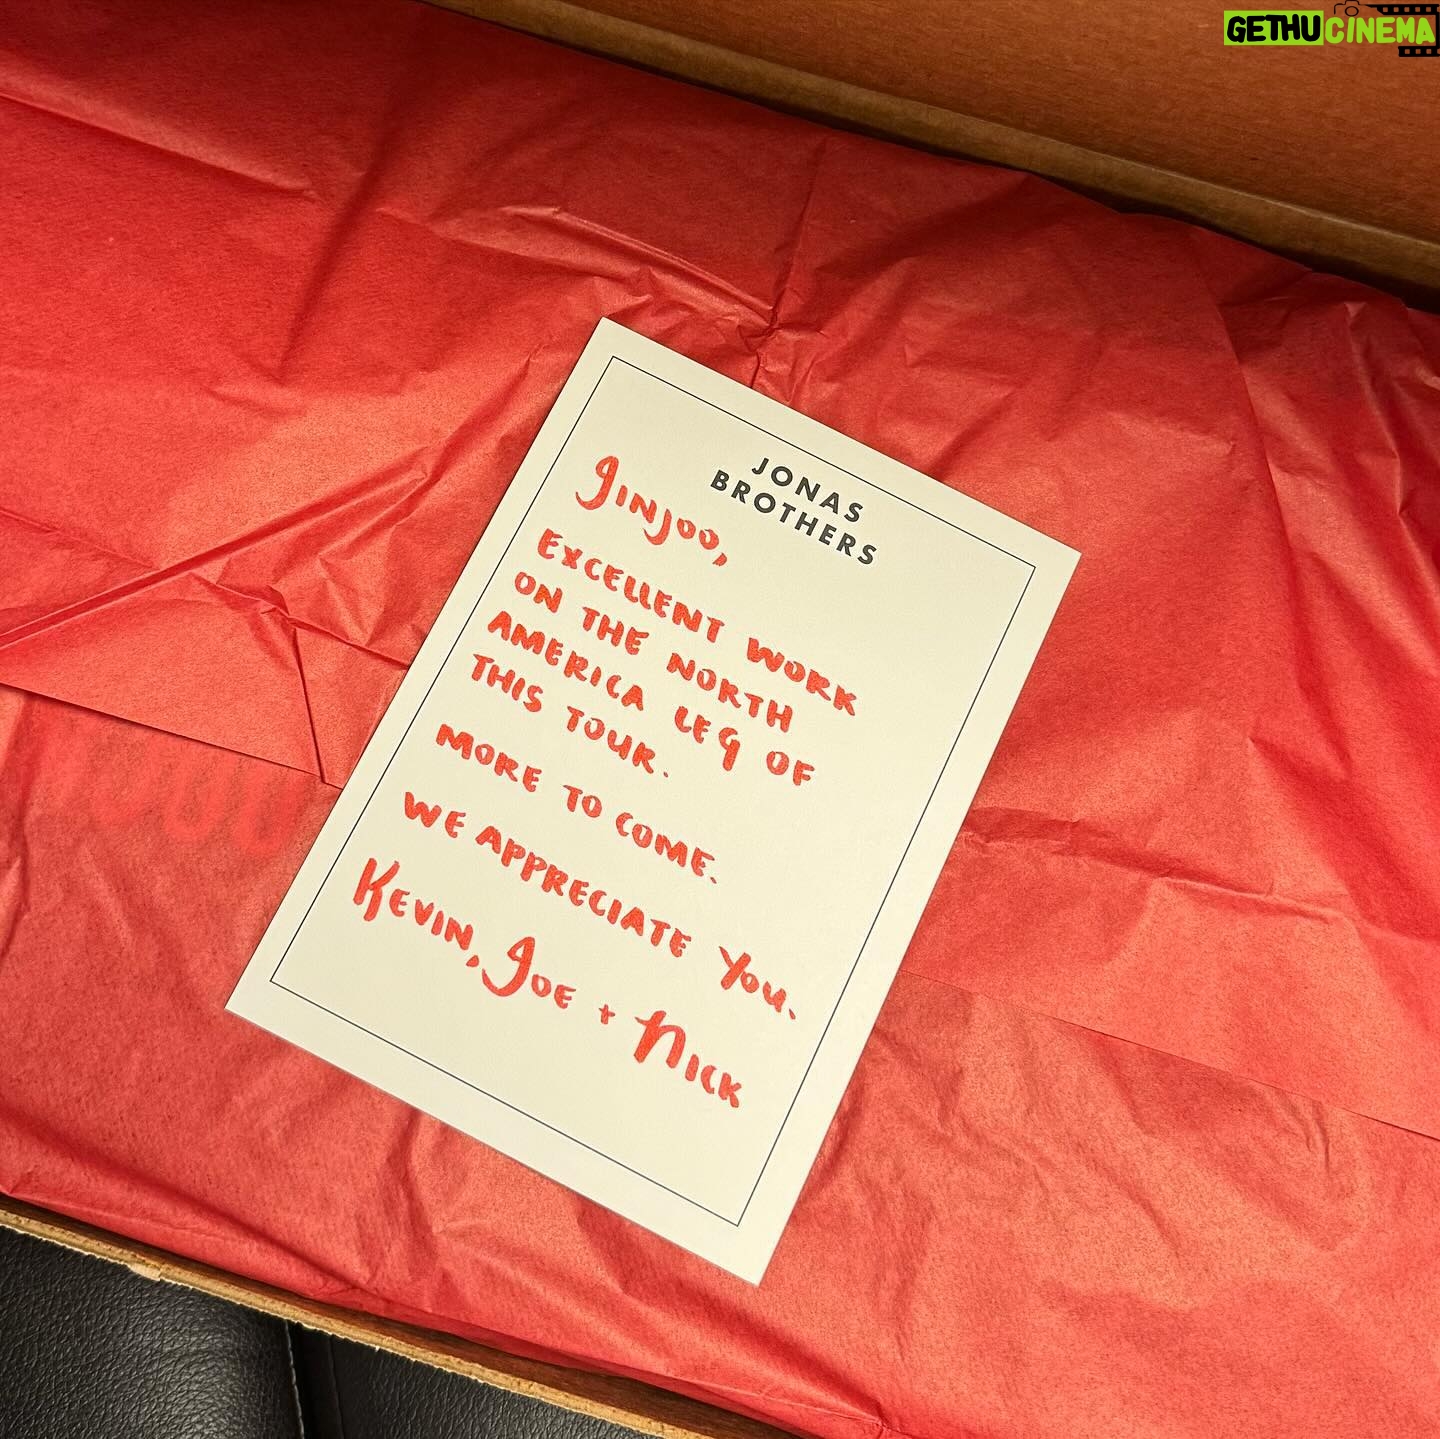 GETHUCINEMA
JONAS
BROTHERS
JINJOO,
EXCELLENT WORK
ON THE NORTH
AMERICA LEG OF
THIS TOUR.
MORE TO COME.
WE APPRECIATE YOU.
KEVIN, JOE + NICK